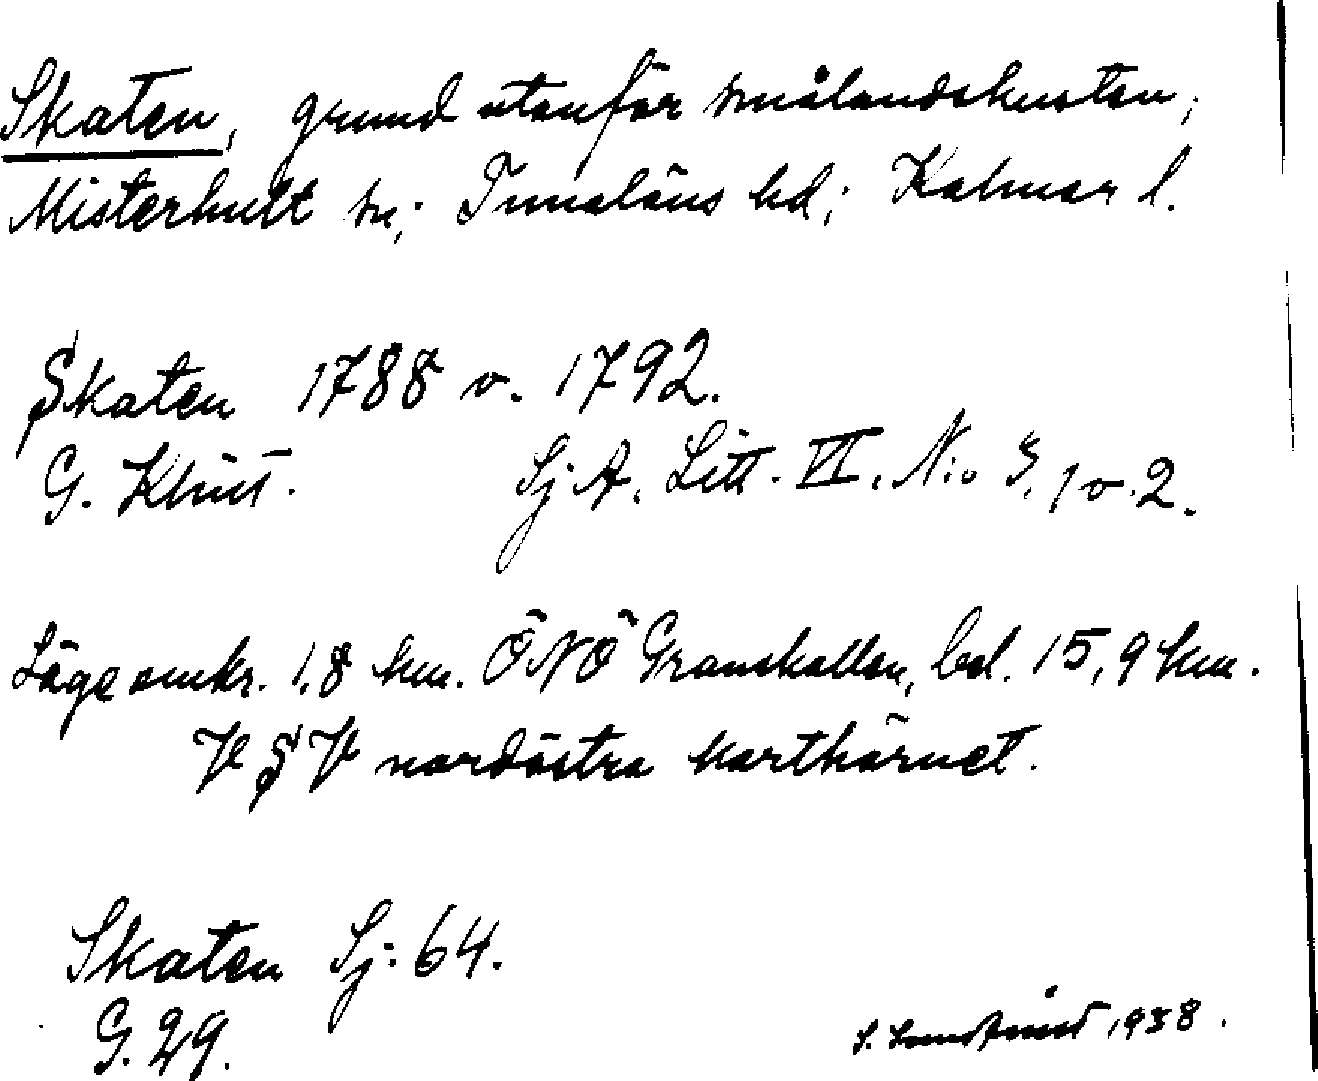 Skaten, grund utanför smålandskusten,
Misterhult sn; Tunaläns hd; Kalmar l.
Skaten 1788 o. 1792.
G. Klint. Sj A. Litt. VI. N:o 3, 1 o. 2.
Läge omkr. 1,8 km. ÖNÖ Granskallen, bel. 15,9 km.
V S V nordöstra karthörnet.
Skaten Sj: 64.
G. 29.
1938.